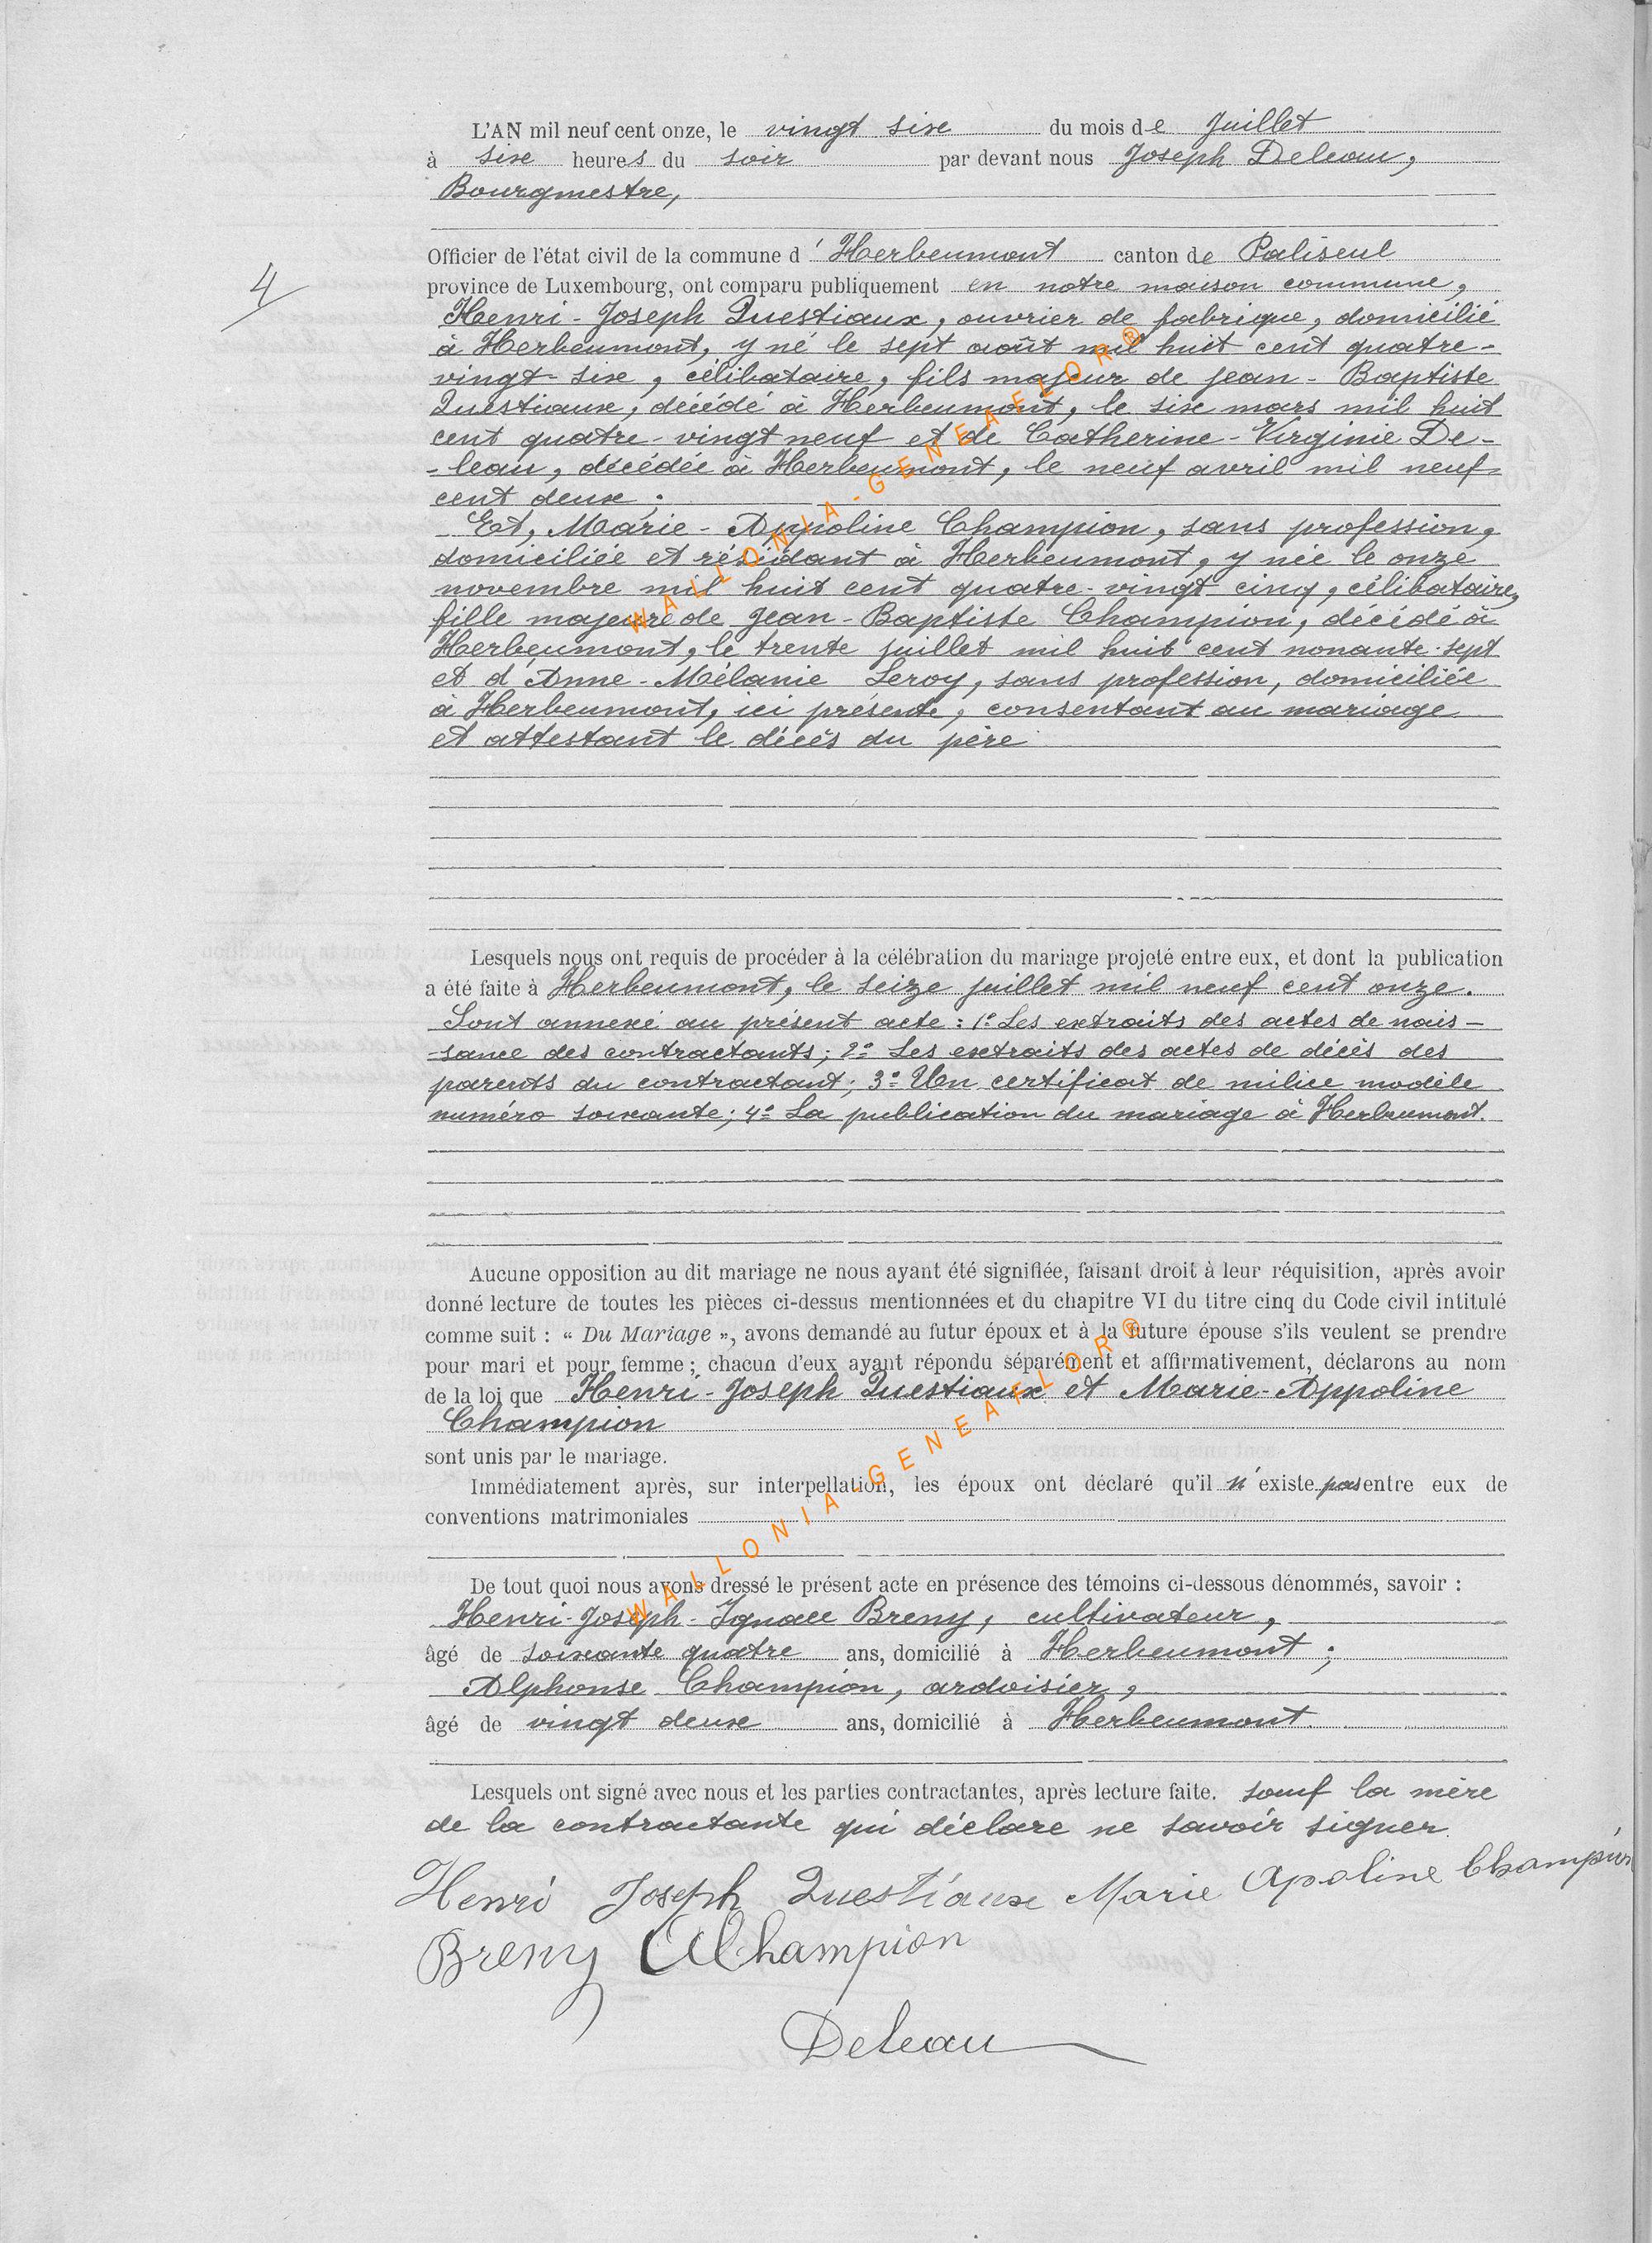 L'AN mil neuf cent onze, le vingt six du mois de Juillet
à six heures du soir par devant nous Joseph Deleau,
Bourgmestre,
Officier de l'état civil de la commune d' Herbeumont canton de Paliseul
4
province de Luxembourg, ont comparu publiquement en notre maison commune,
Henri-Joseph Questiaux, ouvrier de fabrique, domicilié
à Herbeumont, y né le sept août mil huit cent quatre-
vingt-six, célibataire, fils majeur de Jean-Baptiste
Questiaux, décédé à Herbeumont, le six mars mil huit
cent quatre-vingt neuf et de Catherine-Virginie De-
-leau, décédée à Herbeumont, le neuf avril mil neuf
cent deux ;
Et, Marie-Appoline Champion, sans profession,
domiciliée et résidant à Herbeumont, y née le onze
novembre mil huit cent quatre-vingt cinq, célibataire,
fille majeure de Jean-Baptiste Champion, décédé à
Herbeumont, le trente juillet mil huit cent nonante-sept
et d'Anne-Mélanie Leroy, sans profession, domiciliée
à Herbeumont, ici présente, consentant au mariage
et attestant le décès du père
WALLONIA-GENEAFLOR®
Lesquels nous ont requis de procéder à la célébration du mariage projeté entre eux, et dont la publication
a été faite à Herbeumont, le seize juillet mil neuf cent onze.
Sont annexé au présent acte : 1º Les extraits des actes de nais-
-sance des contractants; 2º Les extraits des actes de décès des
parents du contractant; 3º Un certificat de milice modèle
numéro soixante; 4º La publication du mariage à Herbeumont.
Aucune opposition au dit mariage ne nous ayant été signifiée, faisant droit à leur réquisition, après avoir
donné lecture de toutes les pièces ci-dessus mentionnées et du chapitre VI du titre cinq du Code civil intitulé
comme suit : « Du Mariage », avons demandé au futur époux et à la future épouse s'ils veulent se prendre
pour mari et pour femme ; chacun d'eux ayant répondu séparément et affirmativement, déclarons au nom
de la loi que Henri-Joseph Questiaux et Marie-Appoline
Champion
sont unis par le mariage.
Immédiatement après, sur interpellation, les époux ont déclaré qu'il n'existe pas entre eux de
conventions matrimoniales
WALLONIA-GENEAFLOR®
De tout quoi nous avons dressé le présent acte en présence des témoins ci-dessous dénommés, savoir :
Henri-Joseph-Ignace Breny, cultivateur,
âgé de soixante quatre ans, domicilié à Herbeumont ;
Alphonse Champion, ardoisier,
âgé de vingt deux ans, domicilié à Herbeumont.
Lesquels ont signé avec nous et les parties contractantes, après lecture faite. sauf la mère
de la contractante qui déclare ne savoir signer.
Henri Joseph Questiaux Marie Apoline Champion
Breny AChampion
Deleau